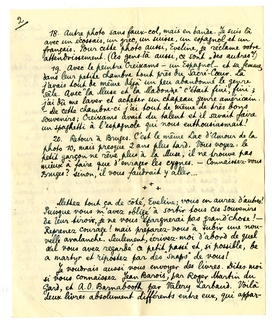 2.
18. Autre photo sans faux-col, mais en bande. Je suis là
avec un écossais, un grec, un suisse, un espagnol et un
français. Pour cette photo aussi, Eveline, je réclame votre
attendrissement. (Ces gens-là aussi, ce sont "des autres"?)
19. Avec le peintre Creixams - un Espagnol - et sa femme
dans leur petite chambre tout près du Sacré-Cœur. Là
j'avais tout de même déjà un peu abandonné le genre
. Avec la pluse et la llabonde" c'était fini, fini;
j'ai dû me laver et acheter un chapeau genre américain.
De cette chambre-ci j'ai tout de même de très bons
souvenirs; Creixams avait du talent et il savait faire
un spaghetti à l'espagnole qui nous enthousiasmait!
20. Retour à Bruges. C'est le même Lac d'Amour de la
photo 10, mais presque 2 ans plus tard. Vous voyez: le
petit garçon ne rêve plus à la pluse, il ne trouve pas
mieux à faire que d'enrager les cygnes. - Connaissez-vous
Bruges? Sinon, il vous faudrait y aller...
+ +
+
Mettez tout ça de côté, Eveline; vous en aurez d'autres!
Puisque vous m'avez obligé à sortir tous ces souvenirs
de leur tiroir, je ne vous épargnerai pas grand'chose! -
Reprenez courage! mais préparez-vous à subir une nou-
velle avalanche. Seulement, écrivez-moi d'abord de quel
œil vous avez regardé ce petit passé et si possible,
martyr et ripostez par des snaps de vous!
Je voudrais aussi vous envoyer des livres. Dites-moi
si vous connaissez Jean Barois, par Roger Martin du
Gard, et A.O. Barnabooth par Valery Larbaud. Voilà
deux livres absolument différents entre eux, qui appar-